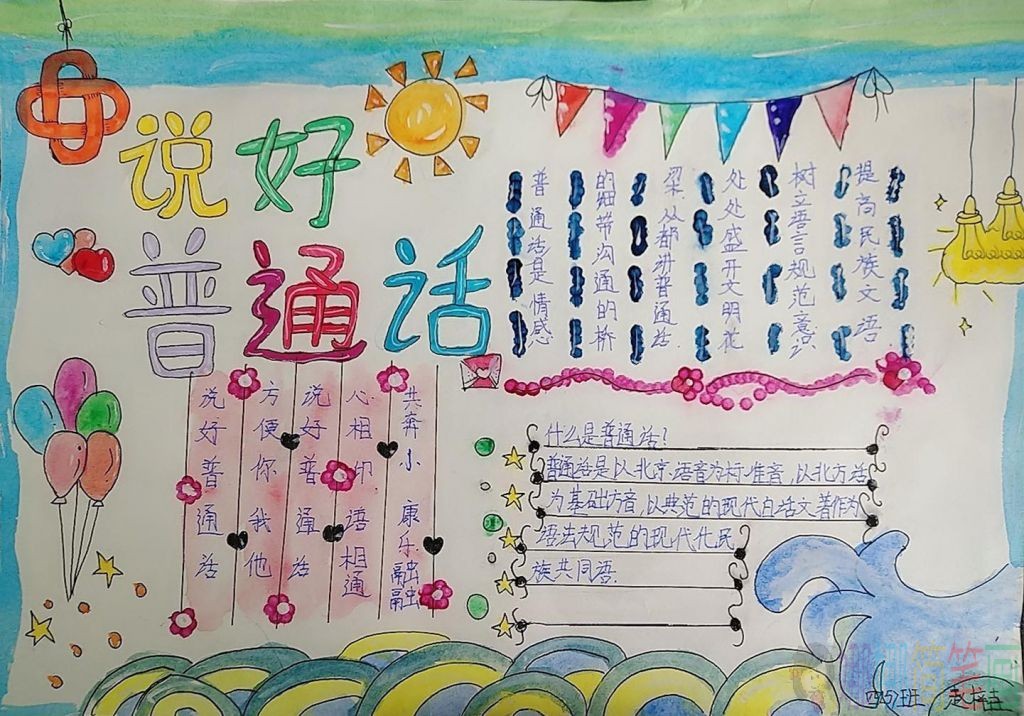 说好
普通话
普通话是情感
的纽带沟通的桥
梁人人都讲普通话
处处盛开文明花
树立语言规范意识
提高民族文语
说好普通话
方便你我他
说好普通话
心相印语相通
共奔小康乐融融
什么是普通话?
普通话是以北京语音为标准音,以北方话
为基础方音,以典范的现代白话文著作为
语法规范的现代化民
族共同语.
班